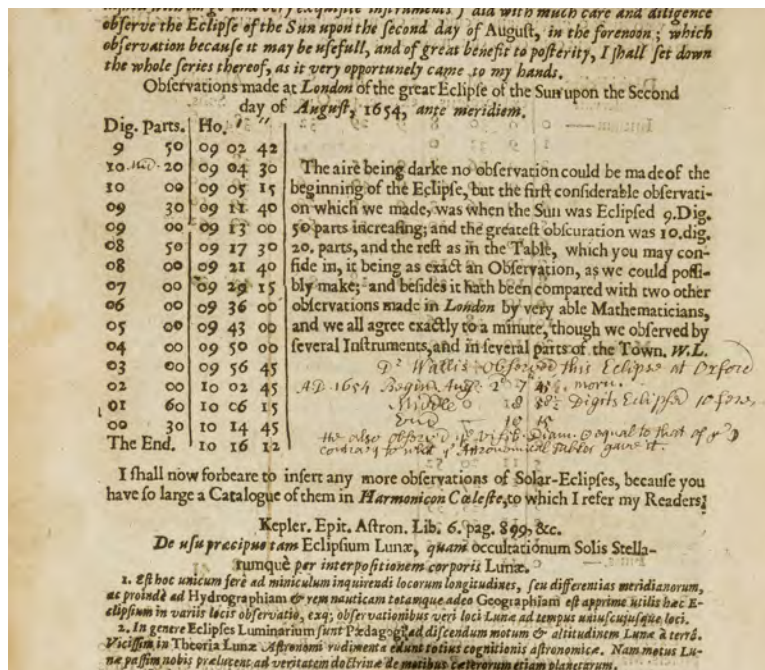 and very exquisite Instruments I did with much care and diligence
observe the Eclipse of the Sun upon the second day of August, in the forenoon; which
observation because it may be usefull, and of great benefit to posterity, I shall set down
the whole series thereof, as it very opportunely came to my hands.
Observations made at London of the great Eclipse of the Sun upon the Second
day of August, 1654, ante meridiem.
Dig. Parts. Ho. ' "
9 50 09 02 42
10 Mid. 20 09 04 30
10 00 09 05 15
09 30 09 11 40
09 00 09 13 00
08 50 09 17 30
08 00 09 21 40
07 00 09 29 15
06 00 09 36 00
05 00 09 43 00
04 00 09 50 00
03 00 09 56 45
02 00 10 02 45
01 60 10 06 15
00 30 10 14 45
The End. 10 16 12
The aire being darke no observation could be made of the
beginning of the Eclipse, but the first considerable observati-
on which we made, was when the Sun was Eclipsed 9. Dig.
50 parts increasing; and the greatest obscuration was 10. dig.
20. parts, and the rest as in the Table, which you may con-
fide in, it being as exact an Observation, as we could possi-
bly make; and besides it hath been compared with two other
observations made in London by very able Mathematicians,
and we all agree exactly to a minute, though we observed by
severall Instruments, and in severall parts of the Town. W.L.
Dr Wallis observed this Eclipse at Oxford
AD 1654 Begins Aug. 2d 7 morn.
Middle Digits Eclipsed 10 fere,
End
He also observed ye visib. Diam. ☉ equal to that of ye ☽
contrary to what ye Astronomical Tables gave it.
I shall now forbeare to insert any more observations of Solar-Eclipses, because you
have so large a Catalogue of them in Harmonicon Cœleste, to which I refer my Readers;
Kepler. Epit. Astron. Lib. 6. pag. 899, &c.
De usu præcipuo tam Eclipsium Lunæ, quam occultationum Solis Stella-
rumquè per interpositionem corporis Lunæ.
1. Est hoc unicum ferè ad miniculum inquirendi locorum longitudines, seu differentias meridianorum,
ac proindè ad Hydrographiam & rem nauticam totamque adeo Geographiam est apprime utilis hæc E-
clipsium in variis locis observatio, exq; observationibus veri loci Lunæ ad tempus uniuscujusque loci.
2. In genere Eclipses Luminarium sunt Pædagogi ad discendum motum & altitudinem Lunæ à terrâ.
Vicissim in Theoria Lunæ Astronomi rudimenta edunt totius cognitionis astronomicæ. Nam motus Lu-
næ passim nobis prælucent ad veritatem doctrinæ de motibus cæterorum etiam planetarum.